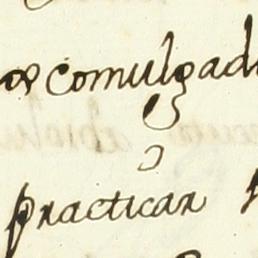 comulgad
practican